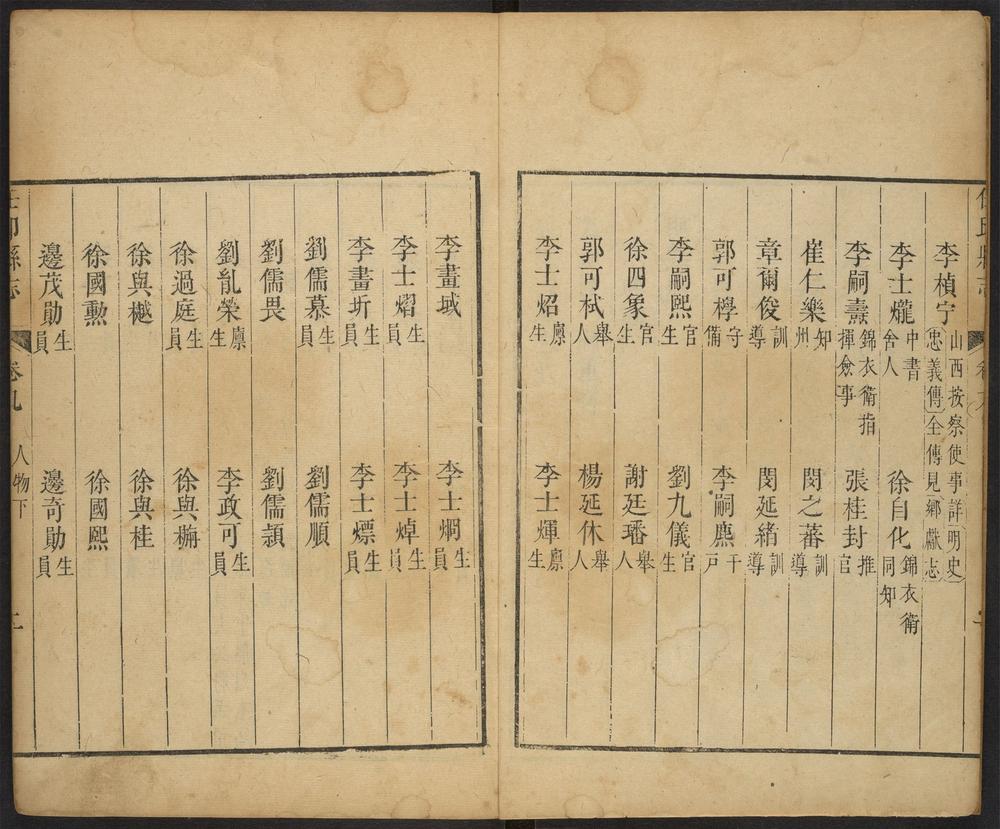 任丘縣志
卷九
李楨宁 山西按察使事詳明史忠義傳全傳見鄉獻志
李士𤓖 中書舍人 徐自化 錦衣衛同知
李嗣燾 錦衣衛指揮僉事 張桂封 推官
崔仁樂 知州 閔之蕃 訓導
章爾俊 訓導 閔延緒 訓導
郭可㰒 守備 李嗣㷅 千戸
李嗣熙 官生 劉九儀 官生
徐四象 官生 謝廷璠 舉人
郭可栻 舉人 楊延休 舉人
李士炤 廪生 李士煇 廪生
李畫域 李士烱 生員
李士熠 生員 李士焯 生員
李畫圻 生員 李士熛 生員
劉儒慕 生員 劉儒順
劉儒畏 劉儒頴
劉胤榮 廪生 李政可 生員
徐過庭 生員 徐與㮤
徐與樾 徐與桂
徐國勲 徐國熙
邊茂勛 生員 邊奇勛 生員
任邱縣志 卷九 人物下 二